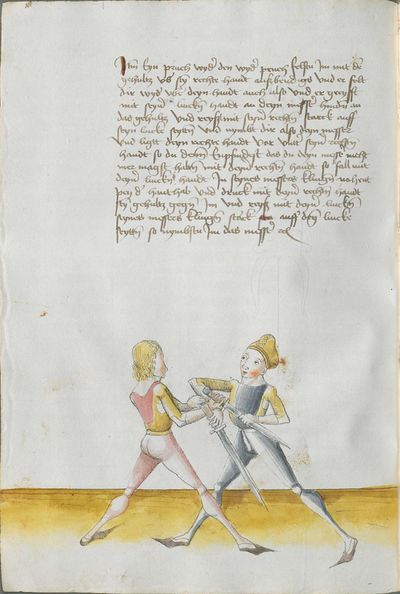 Item Eyn pruch wyder den wyder pruch setz Im mit dem
gehultz vbr sy rechte handt auswendig Vnd er helt
dir wyder vor deyn handt auch also Vnd er greyfft
mit seyner lincken handt an deyn messer hinden an
das gehultz Vnd reyst mit seyner rechten starck auff
seyn lincke seytten Vnd nymbt dir also deyn messer
Vnd ligt deyn rechte handt vor vnter seyner rechten
handt so du denn Empfindest das du deyn messer nicht
mer magst halten mit deyner rechten handt so fall mit
deyner lincken handt In seynes messers klingen nohent
pey der hanthab Vnd druck mit deyner rechten handt
sein gehultz gegen Im Vnd reyß mit deyner lincken
seynes messers klingen starck auff deyn lincke
seytten so nymbstu Im das messer etc